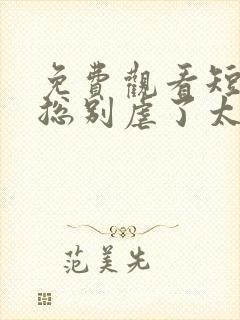 免費觀看短
總别虐了太
范美先